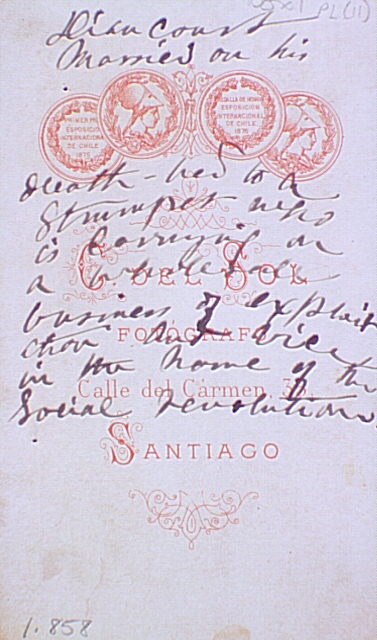 PL(11)
Married on his
PRIMER PREMIO
ESPOSICION
INTERNACIONAL
DE CHILE
1875
MEDALLA DE HONOR
ESPOSICION
INTERNACIONAL
DE CHILE
1875
death-bed to a
Strumpet who
is carrying on
a wholesale
C. DEL SOL
business of exploit
FOTÓGRAFO
ction and vice
in the name of the
Calle del Cármen,
Social revolution.
SANTIAGO
1.858